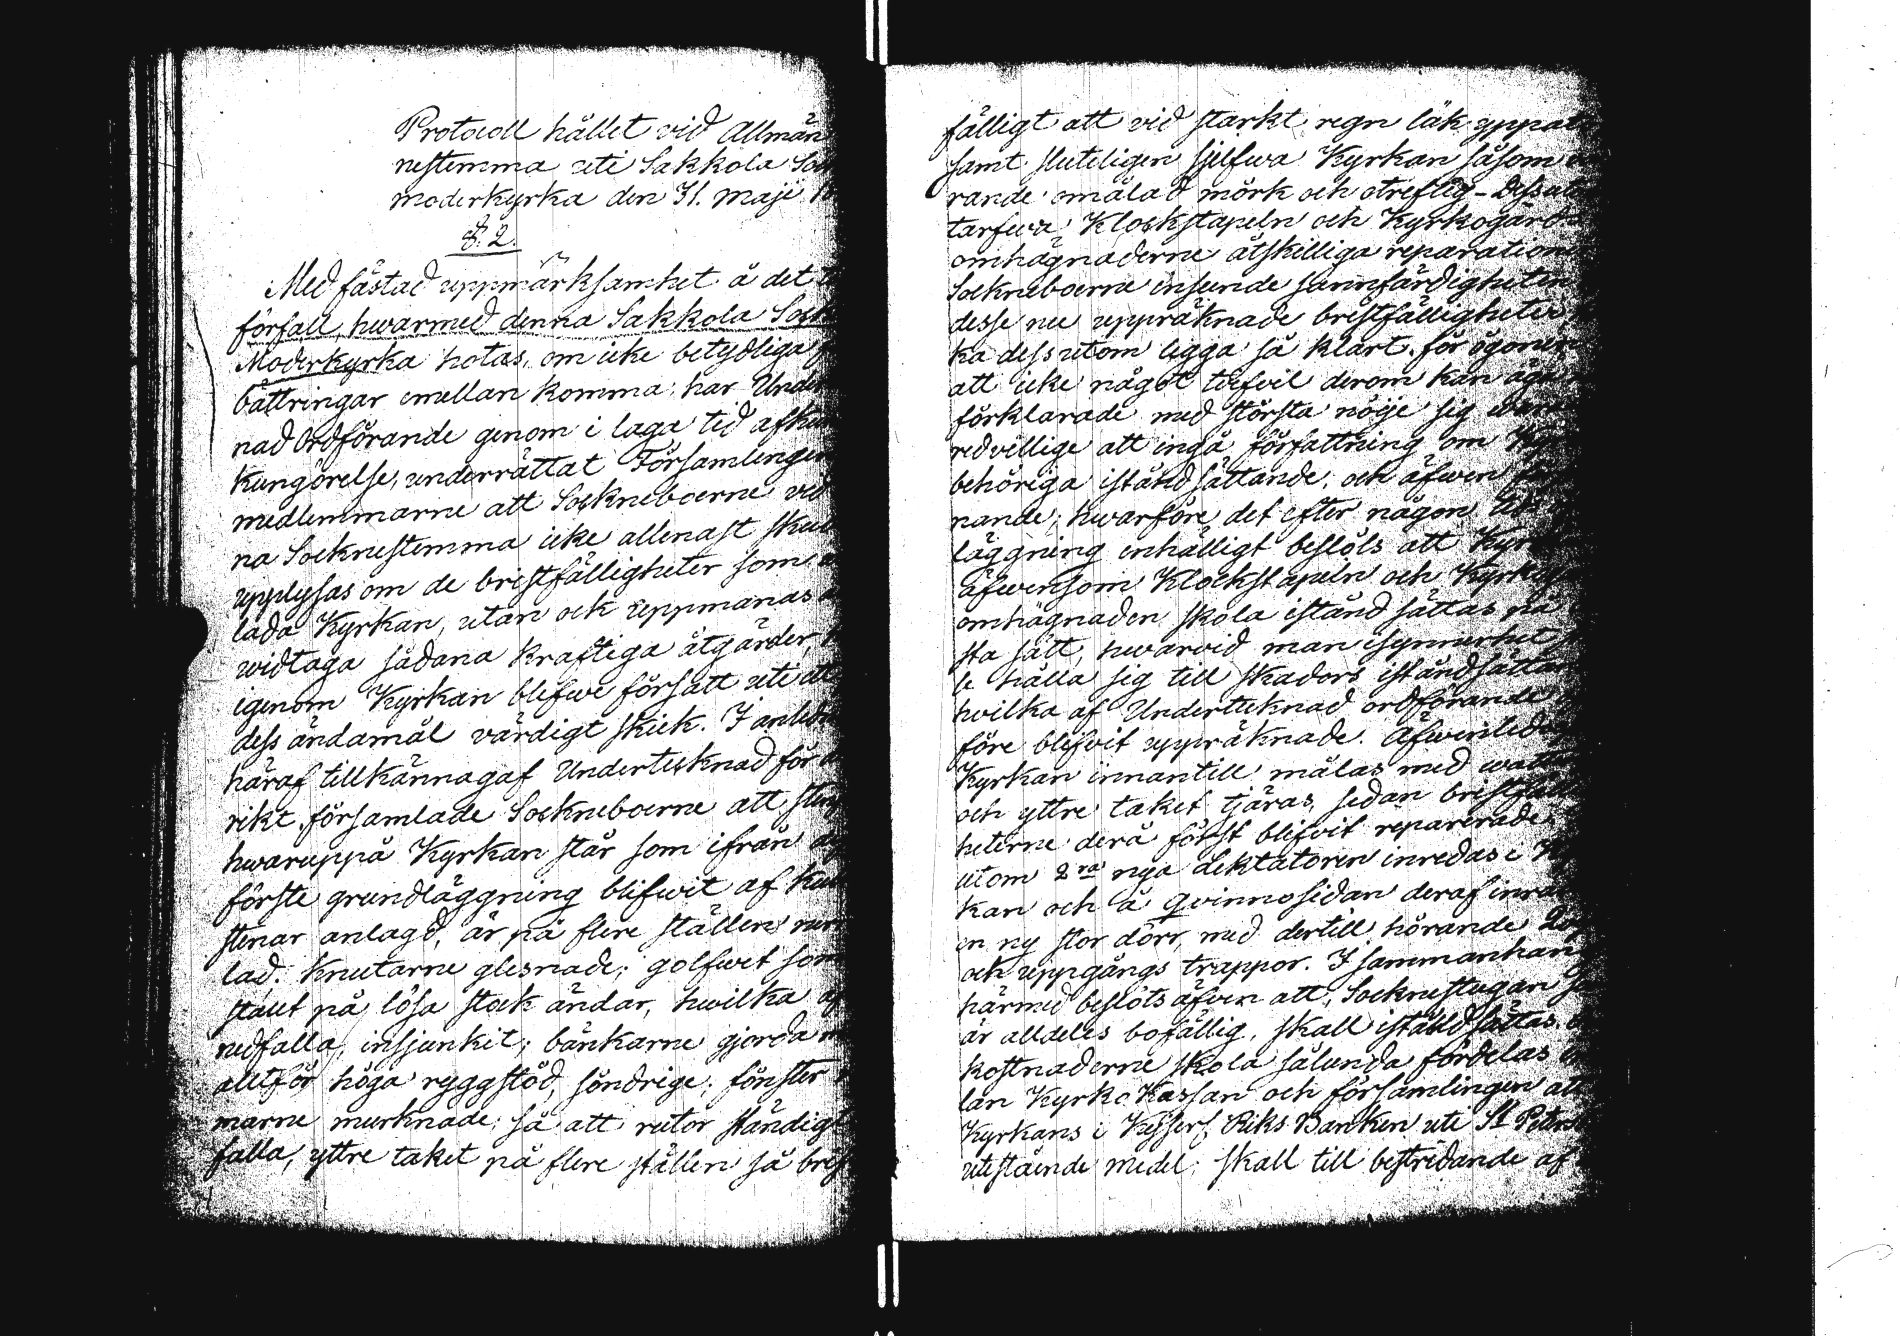 Protocoll hållet vid Allmän
nestemma uti Sakkola Soc
moderkyrka den 31. Maji
§. 2.
Med fästad uppmärksamhet å det
förfall, hwarmed denna Sakkola Sock
Moderkyrka hotas, om icke betydliga
bättringar emellan komma; har Under
nad Ordförande genom i laga tid afkun
kungörelse, underrättat Församlingen
medlemmarne att Sockneboerne vid
na Socknestemma icke allenast skul
upplysas om de bristfälligheter som
lada Kyrkan, utan ock uppmanas
widtaga sådana kraftiga åtgärder,
igenom Kyrkan blefwe försatt uti ett
dess ändamål värdigt skick. I anledn
häraf tillkännagaf Undertecknad för
rikt församlade Sockneboerne att sten
hwaruppå Kyrkan står som ifrån
förste grundläggning blifwit af kul
stenar anlagd, är på flere ställen
lad: knutarne glesnade; golfwet som
staut på lösa stock ändar, hwilka
nedfalla, insjunkit; bänkarne gjorda
alltför höga ryggstöd, söndrige; fönster
marne murknade; så att rutor ständigt
falla, yttre taket på flere ställen så brist
fälligt att vid starkt regn läk uppat
samt sluteligen sjelfwa Kyrkan såsom
rande omålad mörk och otreflig - Dessut
tarfwa Klockstapeln och Kyrkogårds
omhägnaderne åtskilliga reparation
Sockneboerne inseende sannfärdigheten
desse nu uppräknade bristfälligheter
ka dessutom ligga så klart för ögonen
att icke något tvifvel derom kan äga
förklarade med största nöije sig wara
redvillige att ingå författning om Kyr
behöriga iståndsättande, och äfwen
nande; hwarföre det efter någon
läggning enhälligt beslöts att Kyrk
äfwensom Klockstapeln och Kyrkog
omhägnaden skola istånd sättas på
sta sätt, hwarvid man isynnerhet
le hålla sig till skadors iståndsättan
hvilka af Undertecknad ordförande
före blifvit uppräknade. Äfwenledes
Kyrkan innantill målas med watt
och yttre taket tjäras, sedan bristfäll
heterne derå först blifvit reparerade.
utom 2ne nya Lektatoren inredas i Kyr
kan och å qvinnosidan deraf inrä
en ny stor dörr, med dertill hörande
och uppgångs trappor. I sammanhan
härmed beslöts äfven att, Socknestugan
är alldeles bofällig, skall iståndsättas.
kostnaderne skola sålunda fördelas
lan Kyrko Kassan och församlingen att
Kyrkans i Kejserl. Riks Banken uti St Peters
utestående medel; skall till bestridande af